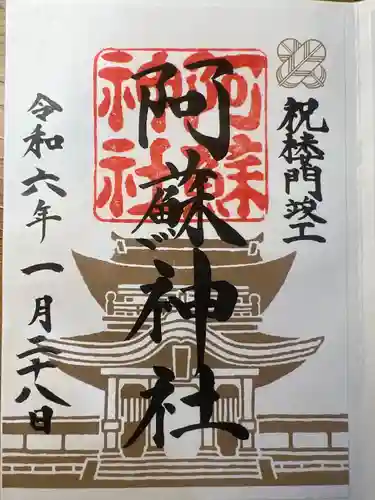 祝楼門竣工
阿蘇神社
令和六年一月二十八日
阿蘇神社